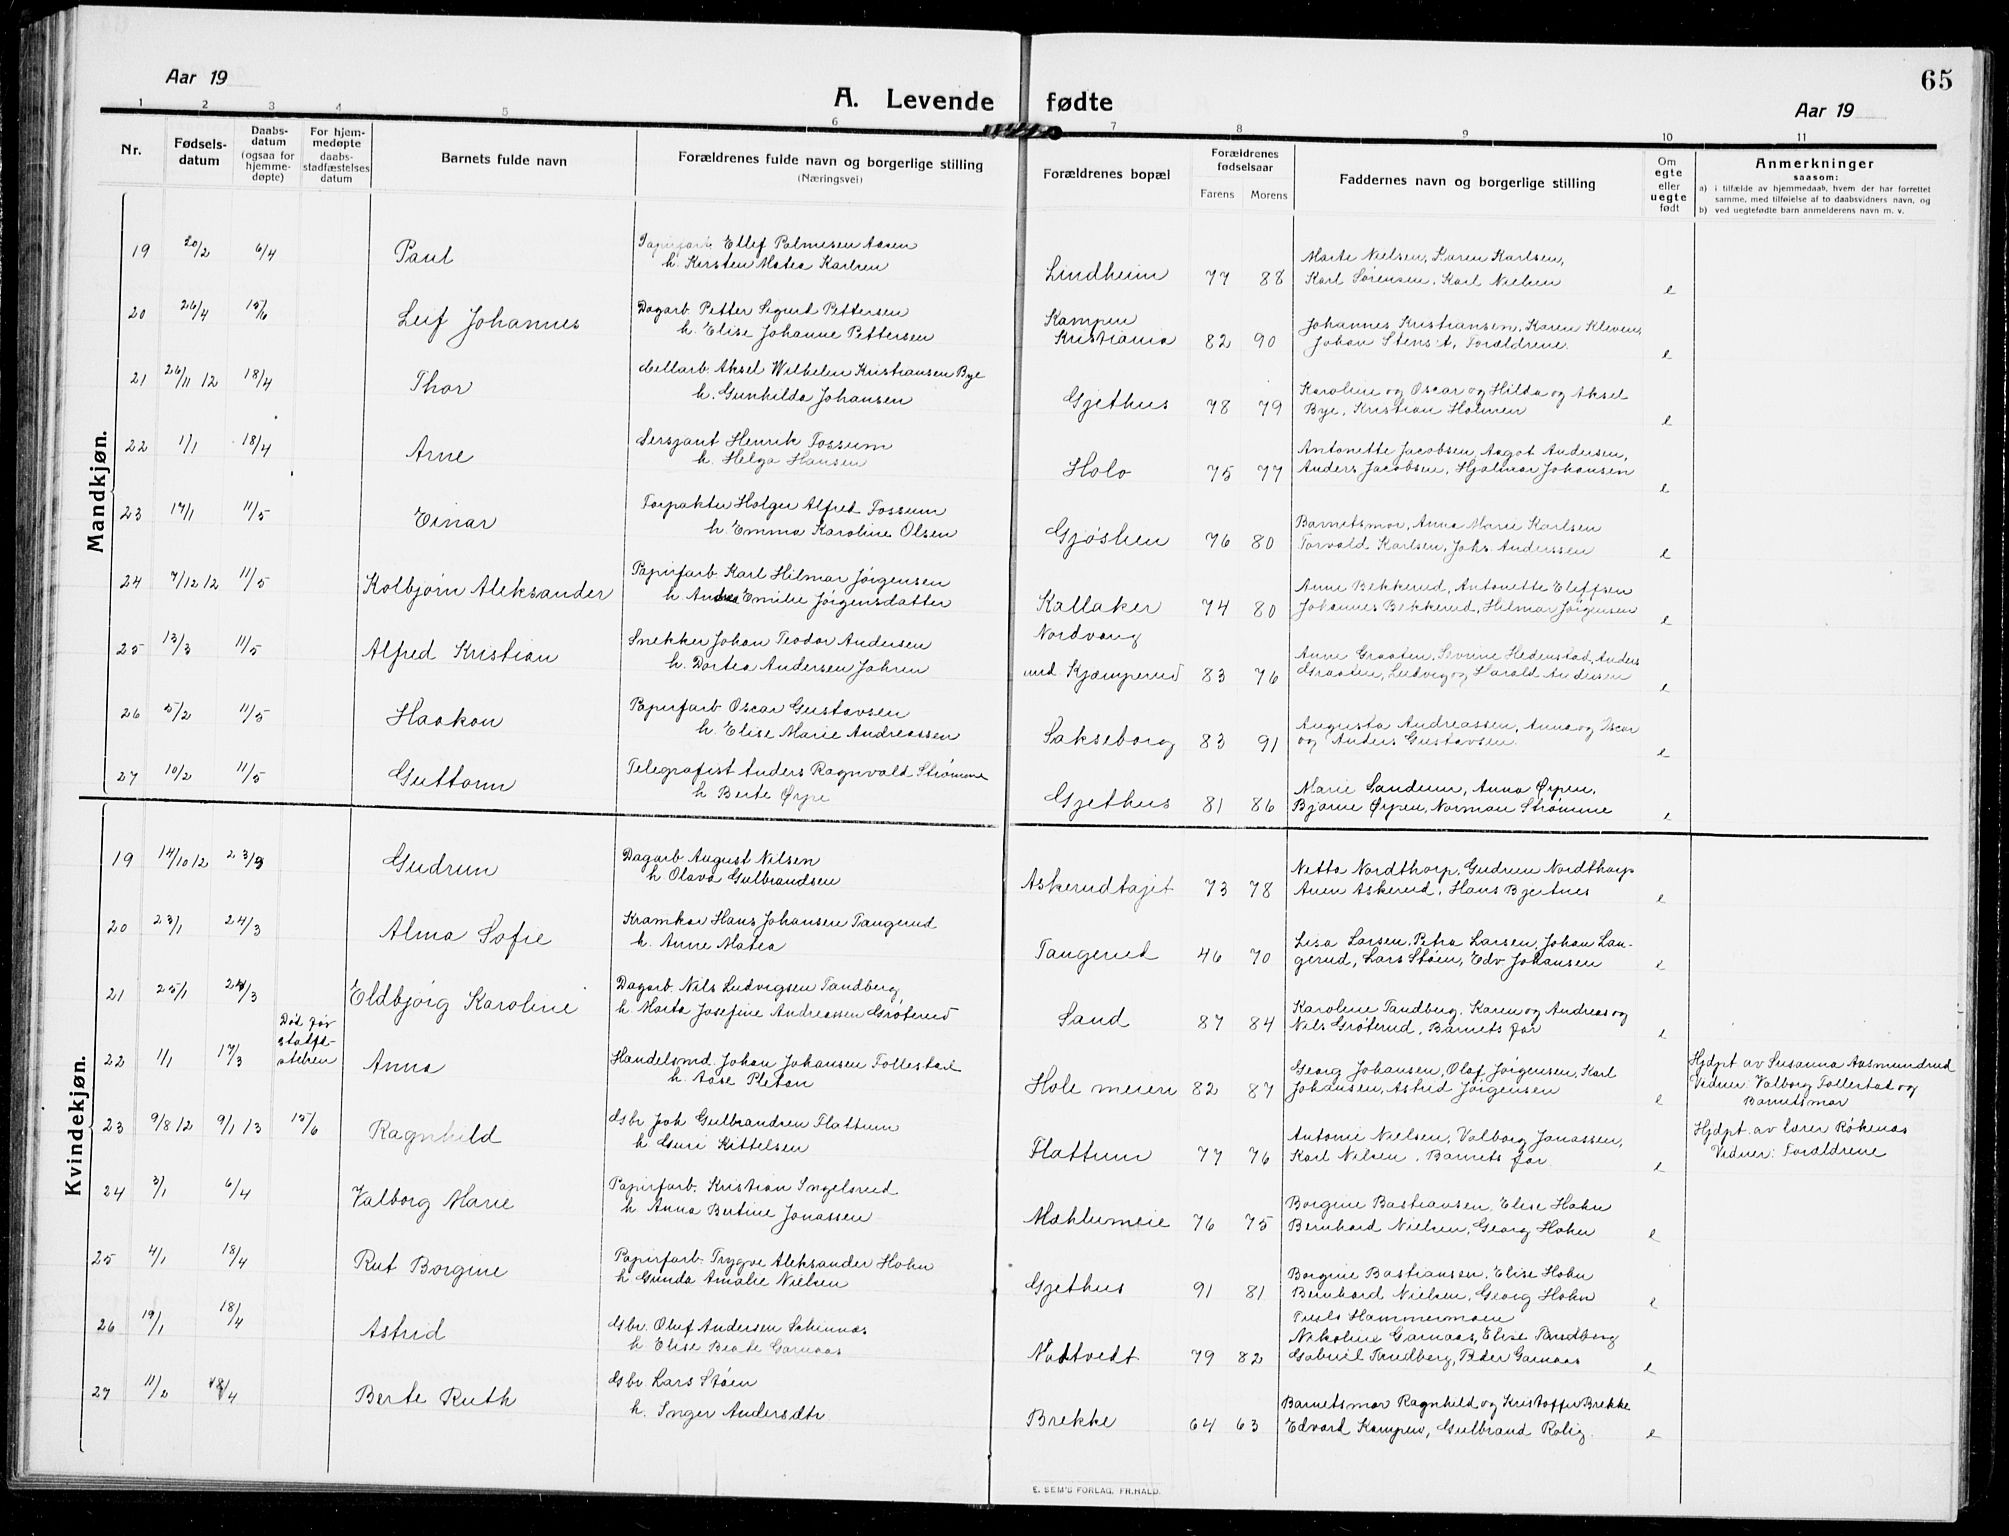 65
Aar 19
A. Levende fødte
Aar 19
1 2 3 4 5 6 7 8 9 10 11
Nr.
Fødsels-datum
Daabs-datum (ogsaa for hjemme-døpte)
For hjem-medøpte daabs-stadfæstelses datum
Barnets fulde navn
Forældrenes fulde navn og borgerlige stilling
(Næringsvei)
Forældrenes bopæl
Forældrenes fødselsaar
Farens Morens
Faddernes navn og borgerlige stilling
Om egte eller uegte født
Anmerkninger
saasom:
a) i tilfælde av hjemmedaab, hvem der har forrettet samme, med tilføielse af to daabsvidners navn, og
b) ved uegtefødte barn anmelderens navn m. v.
Mandkjøn.
19 20/2 6/4 Paul Papirfarb. Ellef Palmesen Aasen
h. Kirsten Matea Karlsen Lindheim 77 88 Marte Nielsen, Søren Karlsen,
Karl Sørensen, Karl Nielsen e
20 26/4 15/6 Leif Johannes Dagarb. Petter Sigurd Pettersen
h. Elise Johanne Pettersen Kampen
Kristiania 82 90 Johannes Kristiansen, Karen Kleven,
Johan Stens't, Forældrene. e
21 26/11 12 18/4 Thor Cellarb. Aksel Wilhelm Kristiansen Bye
h. Gunhilda Johansen Gjethus 78 79 Karoline og Oscar og Hilda og Aksel
Bye, Kristian Holmen e
22 1/1 18/4 Arne Sersjant Henrik Fossum
h. Helga Hansen Holo 75 77 Antonette Jacobsen, Aagot Andersen,
Anders Jacobsen, Hjalmar Johansen e
23 17/1 11/5 Einar Forpakter Holger Alfred Fossum
h. Emma Karoline Olsen Gjøslien 76 80 Barnetsmor, Anna Marie Karlsen
Torvald Karlsen, Johs. Anderssen e
24 7/12 12 11/5 Kolbjørn Aleksander Papirfarb. Karl Hilmar Jørgensen
h. Andrea Emilie Jørgensdatter Kallaker 74 80 Anne Bekkerud, Antonette Eleffsen
Johannes Bekkerud, Hilmar Jørgensen e
25 13/3 11/5 Alfred Kristian Snekker Johan Teodor Andersen
h. Dortea Andersen Jahren Nordvang
und. Kjæmperud 83 76 Anne Graaten, Severine Hedenstad, Anders
Graaten, Ludvig og Harald Andersen e
26 5/2 11/5 Haakon Papirfarb Oscar Gustavsen
h. Elise Marie Andreassen Sakseborg 83 91 Augusta Andreassen, Anna og Oscar
og Anders Gustavsen. e
27 10/2 11/5 Guttorm Telegrafist Anders Ragnvald Strømme
h Berte Øype Gjethus 81 86 Marie Sanderen, Anna Øypen,
Bjarne Øypen, Norman Strømme e
Kvindekjøn.
19 14/10 12 23/3 Gudrun Dagarb August Nilsen
h Olava Gulbrandsen Askerudtajet 73 78 Netta Nordthorp, Gudrun Nordthorp
Anen Askerud, Hans Bjertnes e
20 23/1 24/3 Alma Sofie Kramkar Hans Johansen Tangerud
h. Anne Matea Tangerud 46 70 Lisa Larsen, Petra Larsen, Johan Lan-
gerud, Lars Støen, Edv Johansen e
21 25/1 24/3 Eldbjørg Karoline Dagarb. Nils Ludvigsen Tandberg
h. Marta Josefine Andreassen Grøterud Sand 87 84 Karoline Tandberg, Karen og Andreas og
Nils Grøterud, Barnets far e
22 1/1 17/3 Død før
stadfæ-
stelsen Anna Handelsmd. Johan Johansen Follestad
h. Aase Pletan Hole meieri 82 87 Georg Johansen, Olaf Jørgensen, Karl
Johansen, Astrid Jørgensen e Hjdpt av Susanna Aasmundrud
Vidner: Valborg Follestad og
Barnetsmor
23 9/8 12 9/1 13 15/6 Ragnhild Gbr. Joh Gulbrandsen Flattum
h Guri Kittelsen Flattum 77 76 Antonie Nielsen, Valborg Jonassen,
Karl Nielsen, Barnets far e Hjdpt. av lærer Røkenas
Vidner: Forældrene
24 3/1 6/4 Valborg Marie Papirfarb. Kristian Ingelsrud
h Anna Bertine Jonassen Mæhlumeie 76 75 Borgine Bastiansen, Elise Hohn
Bernhard Nielsen, Georg Hohn e
25 4/1 18/4 Rut Borgine Papirfarb. Trygve Aleksander Hohn
h Gunda Amalie Nielsen Gjethus 91 81 Borgine Bastiansen, Elise Hohn
Bernhard Nielsen, Georg Hohn e
26 19/1 18/4 Astrid Gbr. Oluf Andersen Schinnæs
h Elise Beate Garnaas Nattvedt 79 82 Hammermoen
Nikoline Garnaas, Elise Tandberg
Gabriel Tandberg, Peder Garnaas e
27 11/2 18/4 Berte Ruth Gbr. Lars Støen
h. Inger Andersdtr Brekke 64 63 Barnetsmor Ragnhild og Kristoffer Brekke
Edvard Kampen, Gulbrand Rolig. e
E. SEM'S FORLAG. FR.HALD.